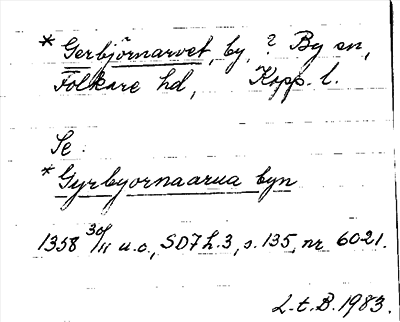 * Gerbjörnarvet, by, ? By sn,
Folkare hd, Kopp. l.
Se
* Gyrbyornaarua byn
1358 30/11 u.o., SD7h.3, s.135, nr 6021.
L.t.B.1983.